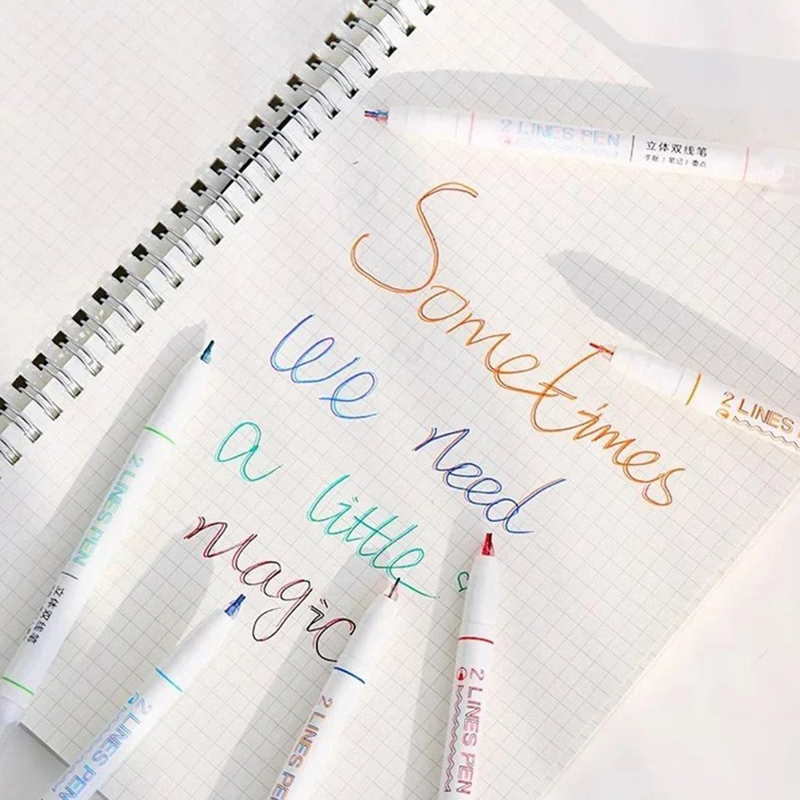 2 LINES PEN
立体双线笔
手帐 | 笔记 | 重点
Sometimes
We need
a little
magic
2 LINES
2 LINES PEN
立体双线笔
2 LINES PEN
2 LINES PEN
2 LINES PEN